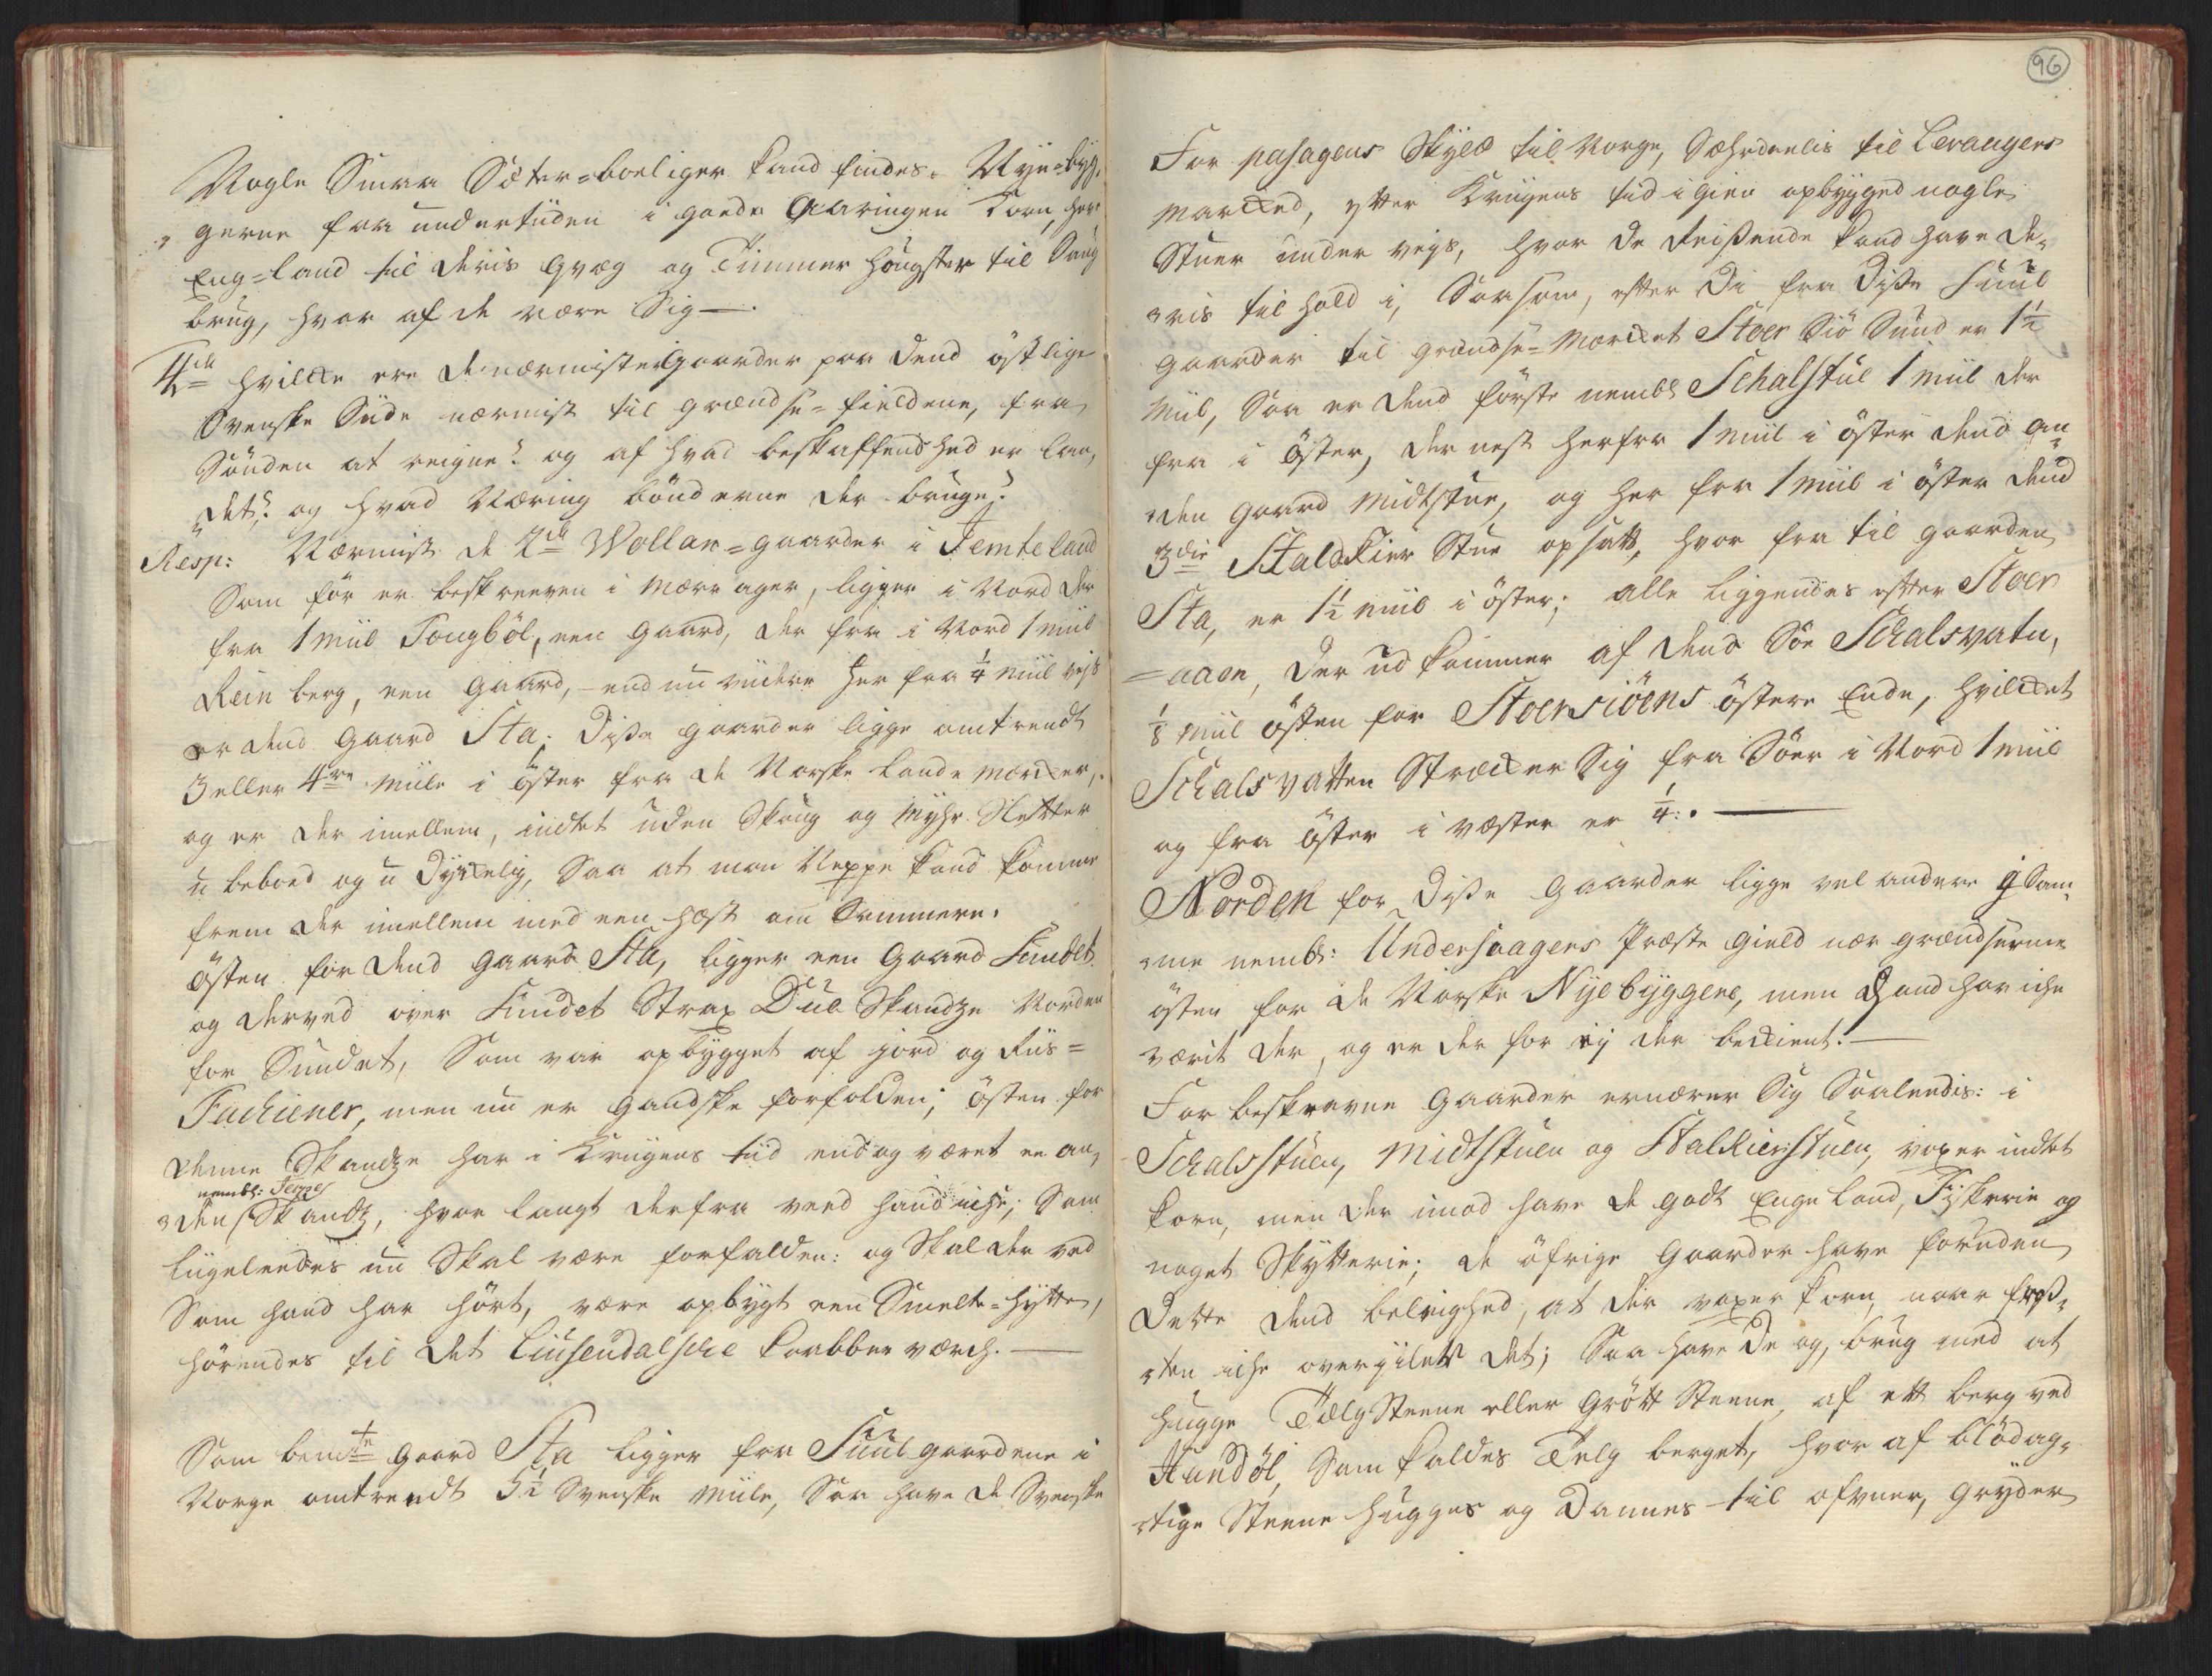 Nogle Smaa Sæter=boeliger kand findes. Nye=byg,
gerne faae undertiiden i goede Aaringer Korn, har
Eng=land til deris Qvæg og Timmer Hougster til Saug
brug, hvor af de nære Sig —.
4de hvilcke ere de nærmiste Gaarder paa dend östlige
Svenske Siide nærmist til grændse=fieldene, fra
Sönden at reigne? og af hvad beskaffendhed er lan,
det? og hvad Næring bönderne der bruge?
Resp: Nærmist de 2de Wollan=gaarder i Jemteland
Som för er beskreeven i Mærrager, ligger i Nord der
fra 1 Miil Tongböl, een gaard, der fra i Nord 1 Miil
Rein berg, een gaard, – end nu viidere her fra 1/4 Miil vejs
er dend gaard Sta; disse gaarder ligge omtrendt
3 eller 4re Miile i öster fra de Norske Lande mercker,
og er der imellem, indtet uden Skoug og Myhr Sletter
u beboed og u dyrckelig, Saa at man Neppe kand komme
frem der imellem med een Hæst om Sommeren.
östen for dend gaard Sta, ligger een Gaard Sundet
og derved over Sundet Strax Due Skandze Norden
for Sundet, Som var opbygget af jord og Riis=
Fachiener, men nu er gandske forfalden; östen for
denne Skandze har i Krigens tiid endog været en an,
nembl: Jerpe
den Skandz, hvor langt derfra veed hand iche; Som
liigeleedes nu Skal være forfalden: og Skal der ved
Som hand har hört, være opbygt een Smelte=Hytte,
hörendes til det Liusendalsche Kaabber værch. —
Som bemte gaard Sta ligger fra Suul gaardene i
Norge omtrendt 5 1/2 Svenske Miile, Saa have de Svenske
96
For pasagens Skyld til Norge, Særdeelis til Levangers
Marcked, efter Krigens tid igien opbygged nogle
Stuer under vejs, hvor de Reisende kand have de,
ris tilhold i, Saasom, efter di fra disse Suul
gaarder til grændse=Mercket Stoer Siö Sund er 1 1/2
Miil, Saa er dend förste nembl Schalstue 1 Miil der
fra i öster, der nest herfra 1 Miil i öster dend an
den gaard Midtstue, og her fra 1 Miil i öster dend
3die Staldkier Stue opsatt, hvor fra til gaarden
Sta, er 1 1/2 Miil i öster; alle liggendes efter Stoer
=aaen, der ud kommer af dend Söe Schalsvatn,
1/8 Miil östen for Stoersiöens östere Ende, hvilcket
Schalsvatten Strecker Sig fra Söer i Nord 1 Miil
og fra öster i vester er 1/4. —
Norden for disse gaarder ligge vel andre i Sam,
me nembl: Undersaagers Præste gield nær grændserne
östen for de Norske Nyebyggere, men hand har iche
værit der, og er der for ej der bekient. —
For beskrevne gaarder ernærer Sig Saaleedis: i
Schalsstuen, Midtstuen og Stalkierstuen, voxer indtet
korn, men der imod have de godt Enge land, Fiskerie og
noget Skytterie; de öfrige gaarder have foruden
dette dend beleiighed, at der voxer korn, naar fros,
ten iche overjiler det; Saa have de og, brug med at
hugge Tælg Steene eller gröt Steene, af ett berg ved
Handöl, Som kaldes Telg berget, hvor af blödag,
tige Steene hugges og dannes til ofvner, gryder